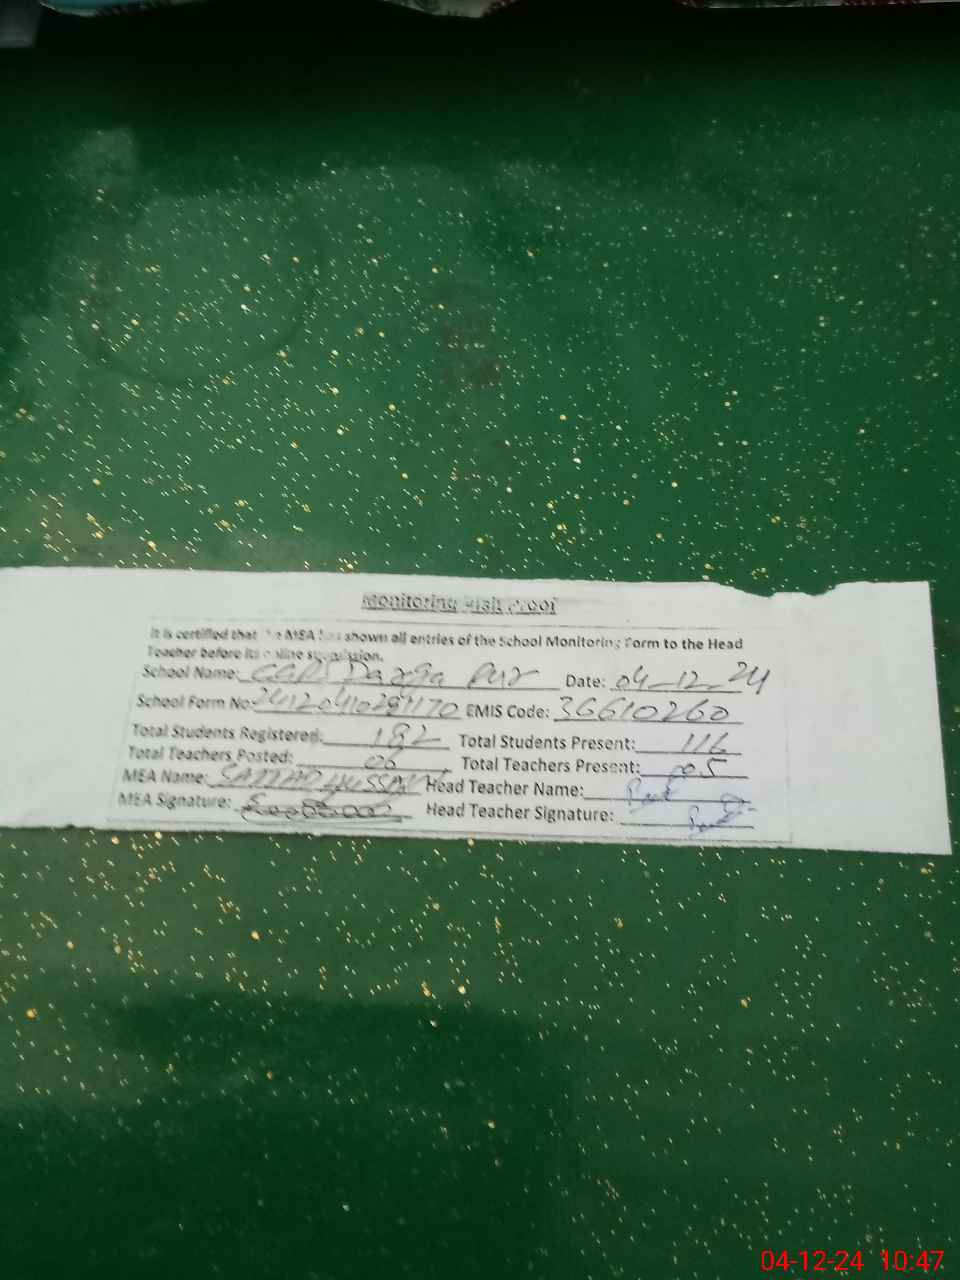 Monitoring Visit Proof
It is certified that the MEA has shown all entries of the School Monitoring Form to the Head
Teacher before its online submission.
School Name: Pur Date: 04-12-24
School Form No: EMIS Code: 36610260
Total Students Registered: 182 Total Students Present: 116
Total Teachers Posted: 06 Total Teachers Present: 05
MEA Name: SAJJAD HUSSAIN Head Teacher Name:
MEA Signature: Head Teacher Signature:
04-12-24 10:47